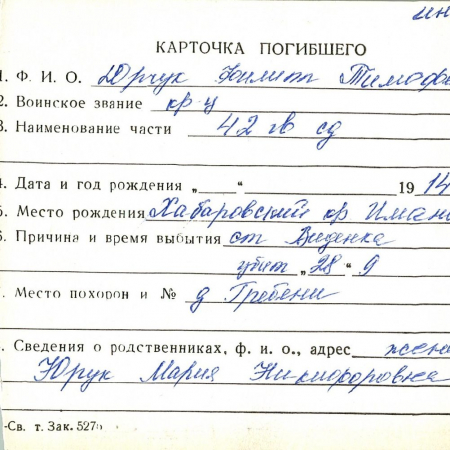 ин
КАРТОЧКА ПОГИБШЕГО
1. Ф. И. О. Юрчук Филипп Тимофе
2. Воинское звание кр-ц
3. Наименование части 42 гв сд
4. Дата и год рождения „ “ 1914
5. Место рождения Хабаровский кр Иман
6. Причина и время выбытия ст Виденка
убит „28“ 9
7. Место похорон и № д Гребени
8. Сведения о родственниках, ф. и о., адрес жена
Юрук Мария Никифоровна
-Св. т. Зак. 527